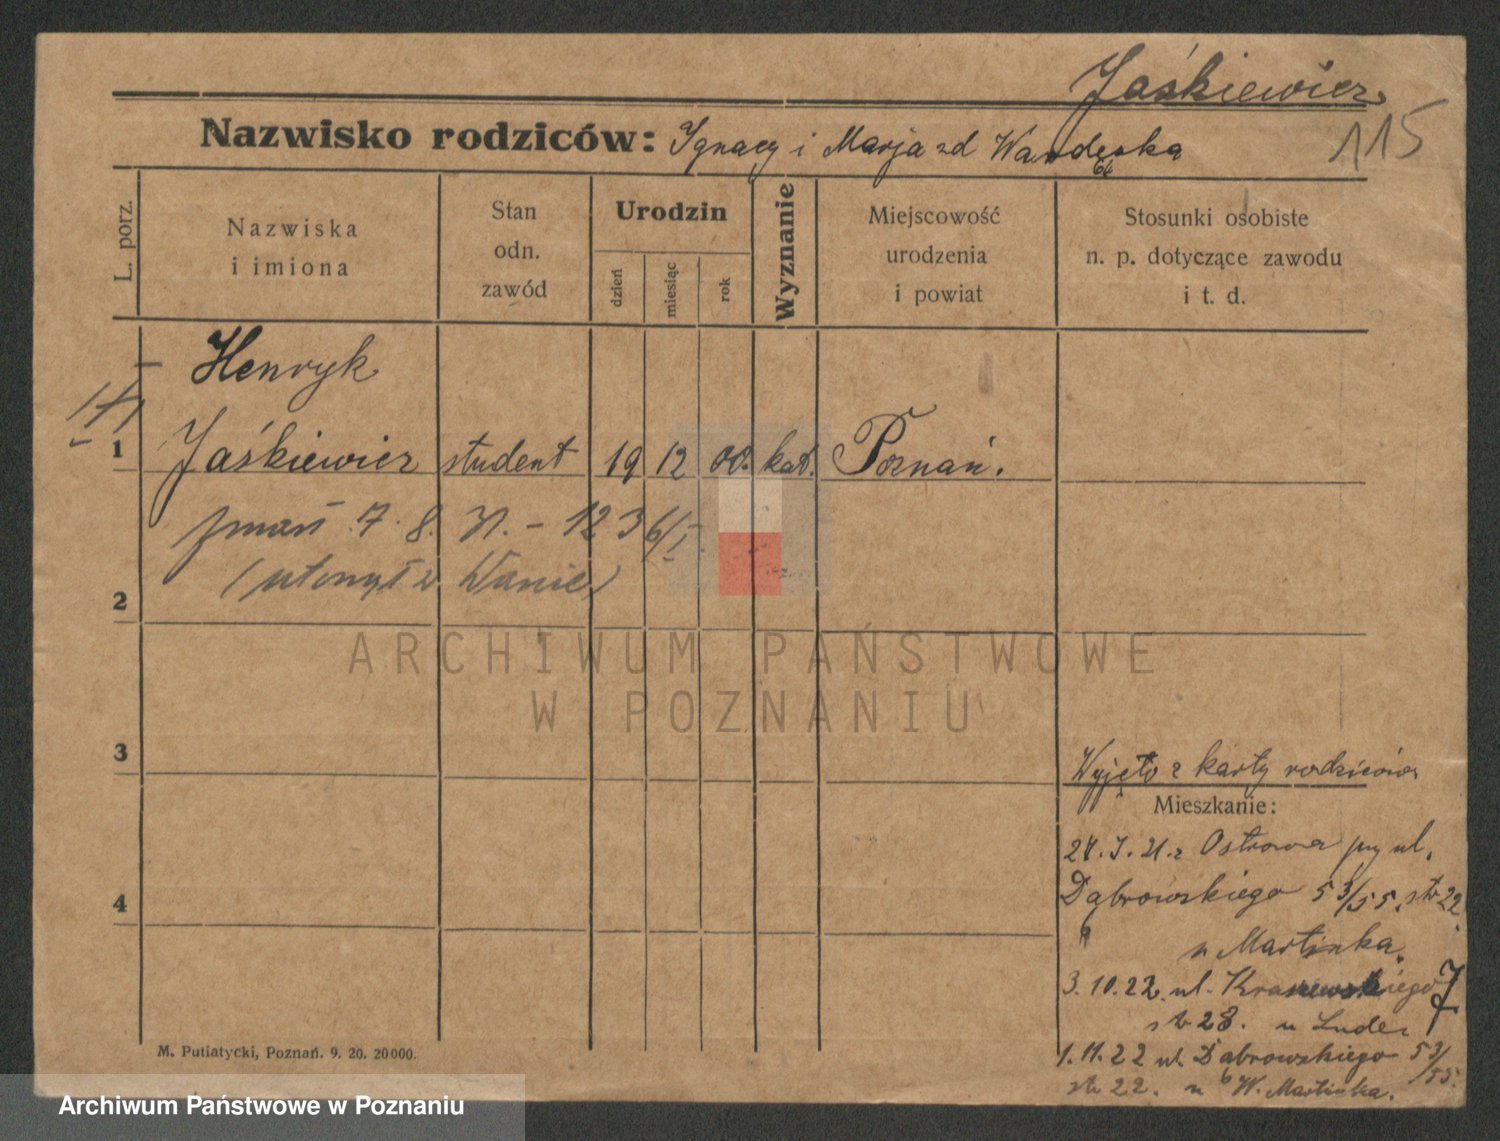 Jaśkiewicz
Nazwisko rodziców: Ignacy i Marja zd
115
L. porz.
Nazwiska i imiona
Stan odn. zawód
Urodzin
dzień
miesiąc
rok
Wyznanie
Miejscowość urodzenia i powiat
Stosunki osobiste n. p. dotyczące zawodu i t. d.
Henryk
1 Jaśkiewicz student 19 12 00. kat. Poznań.
zmarł 7. 8.
2 (utonął w Warcie)
ARCHIWUM PAŃSTWOWE
W POZNANIU
3
Wyjęto z karty rodziców
Mieszkanie:
z Ostrowa przy ul.
4 Dąbrowskiego 53/55. str 22.
u Martinka.
3.10.22. ul. Kraszewskiego 7
str 28. u
1.11.22 ul. Dąbrowskiego 53/55.
str 22. u W. Martinka.
M. Putiatycki, Poznań. 9. 20. 20000.
Archiwum Państwowe w Poznaniu